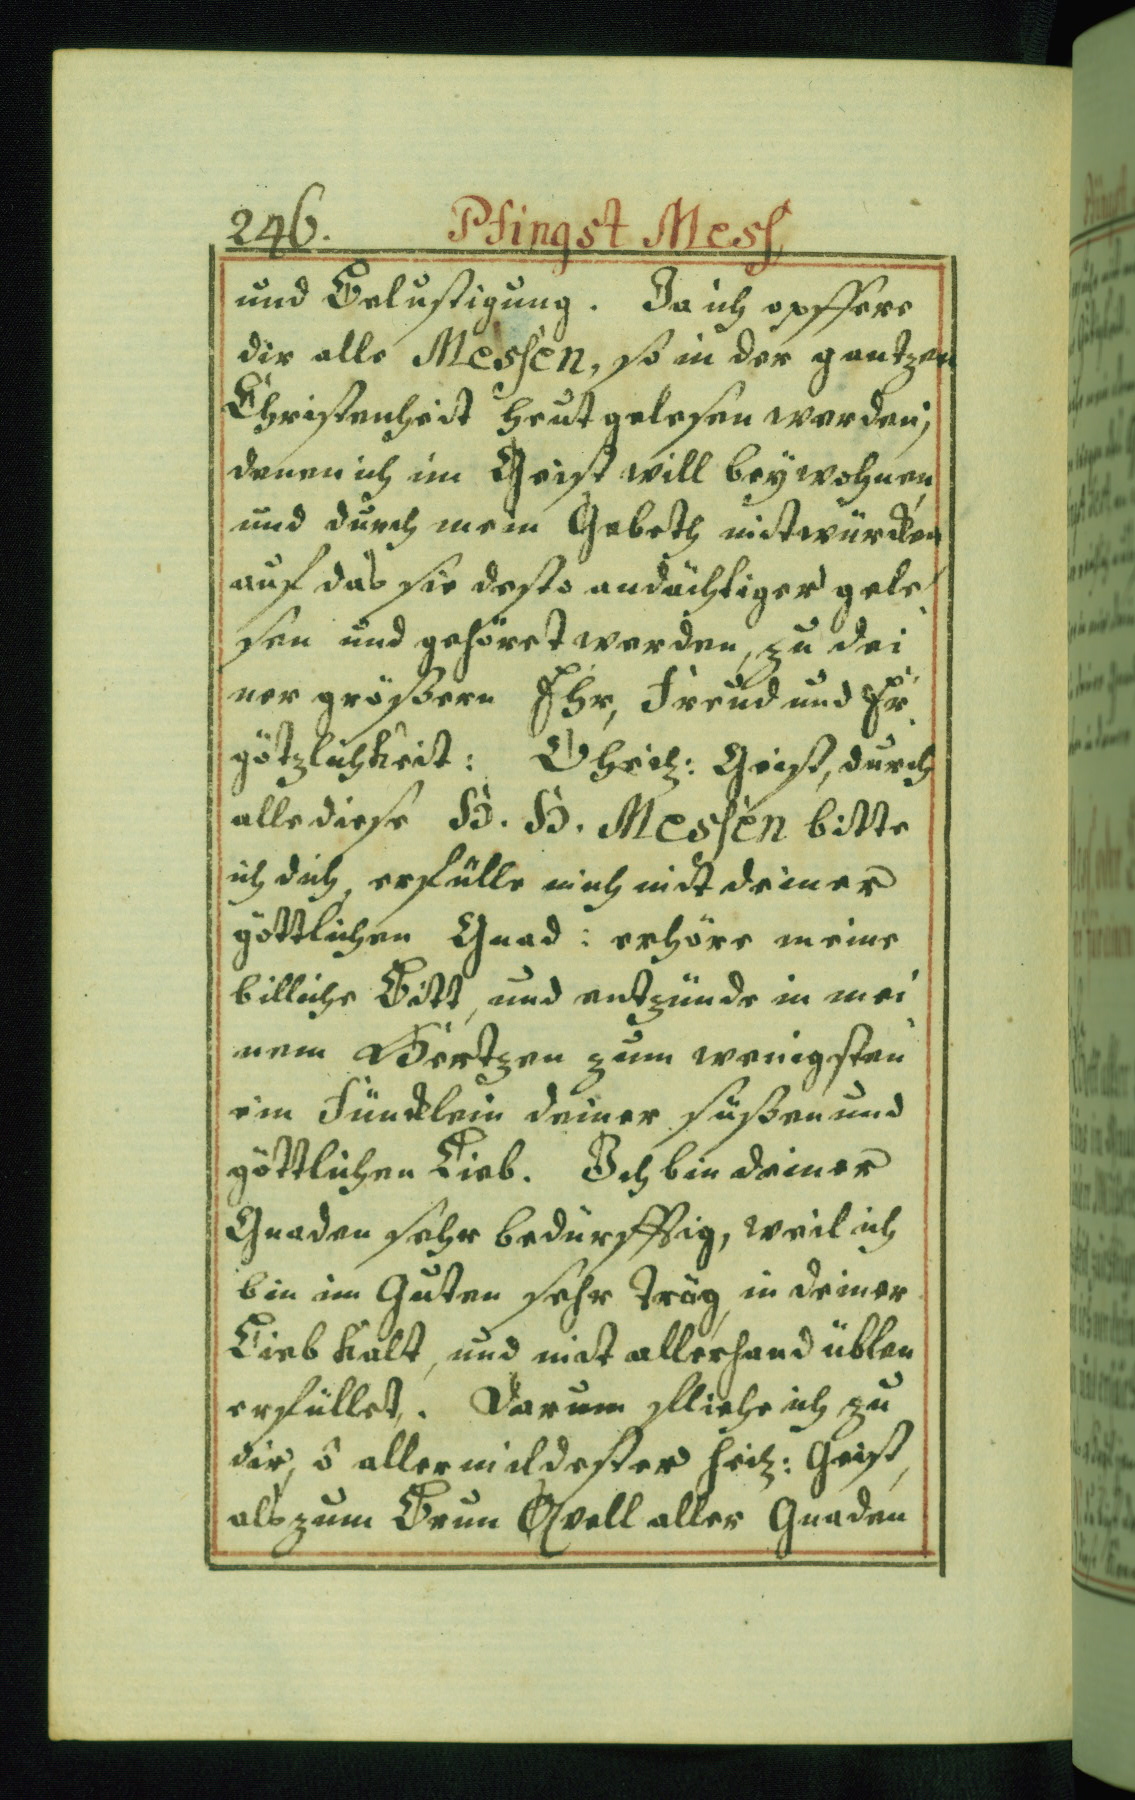 246. Pfingst Mess
und Belustigung. Ja ich opffere
dir alle Messen, so in der gantzen
Christenheit heut gelesen werden;
denen ich im Geist will beÿ wohnen,
und durch mein Gebeth mitwürcken
auf das sie desto andächtiger gele
sen und gehöret werden, zu dei
ner grössern Ehr, Freud und Er
götzlichkeit: O heil: Geist, durch
alle diese H. H. Messen bitte
ich dich, erfülle mich mit deiner
göttlichen Gnad: erhöre meine
billiche Bitt, und entzünde in mei
nem Hertzen zum wenigsten
ein Fündklein deiner süssen und
göttlichen Lieb. Ich bin deiner
Gnaden sehr bedürfftig, weil ich
bin im Guten sehr träg, in deiner
Lieb kalt, und mit allerhand üblen
erfüllet. Darum fliehe ich zu
dir, ô allermildester heil: Geist,
als zum Brun Qvell aller Gnaden